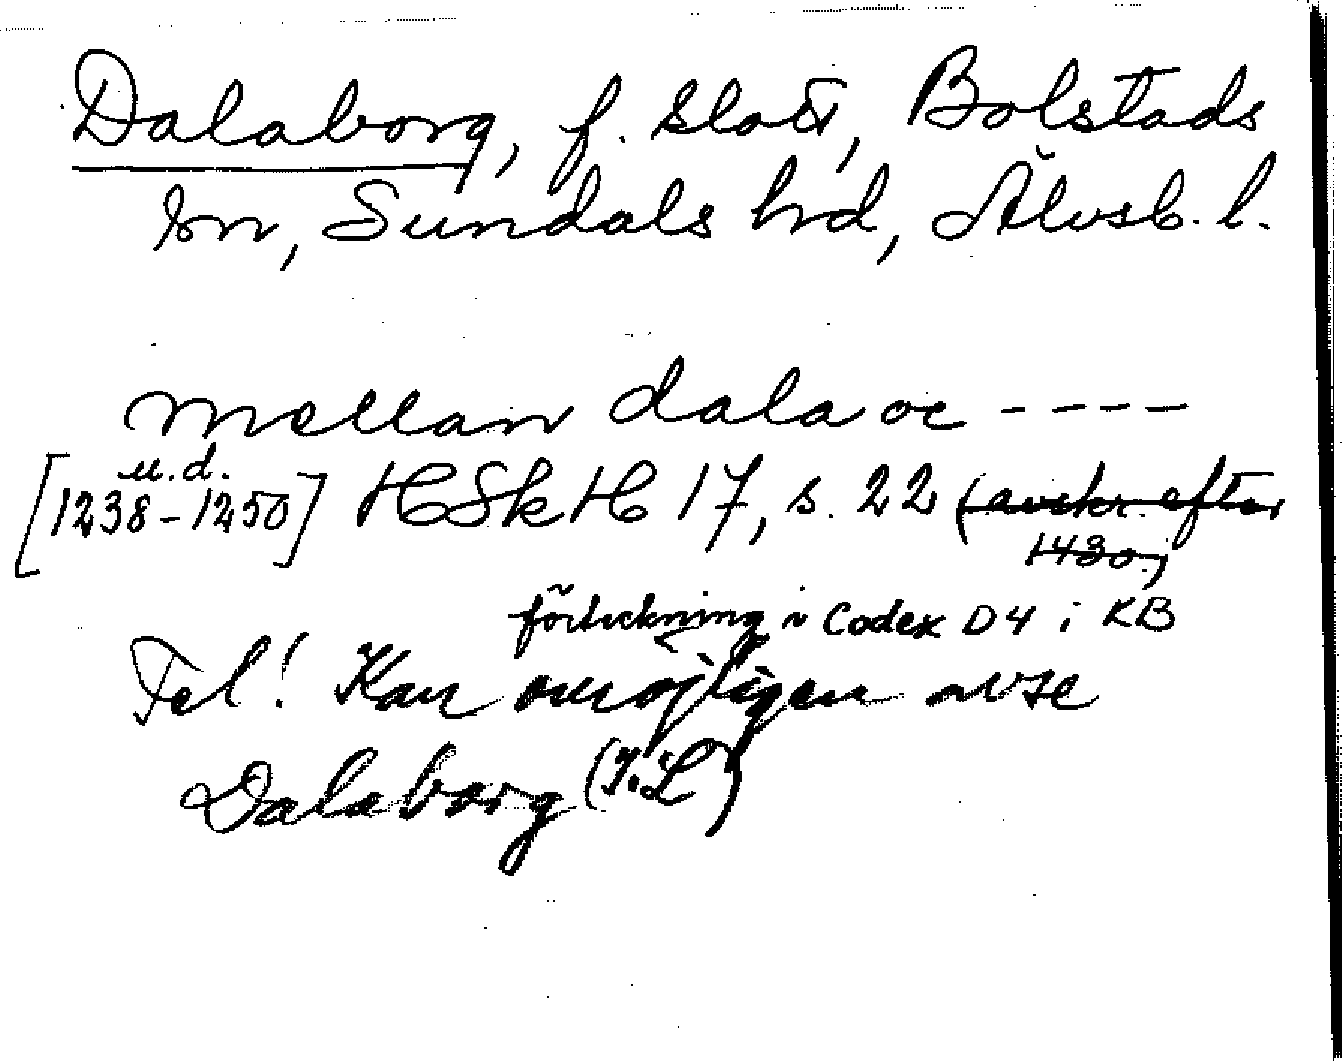 Dalaborg, f. slott, Bolstads
sn, Sundals hd, Älvsb. l.
mellan dala oc ----
u.d.
[1238-1250] HSkH 17, s. 22 (avskr. efter
1430;
förteckning i Codex D4 i KB
Fel! Kan omöjligen avse
Dalaborg (I.L)